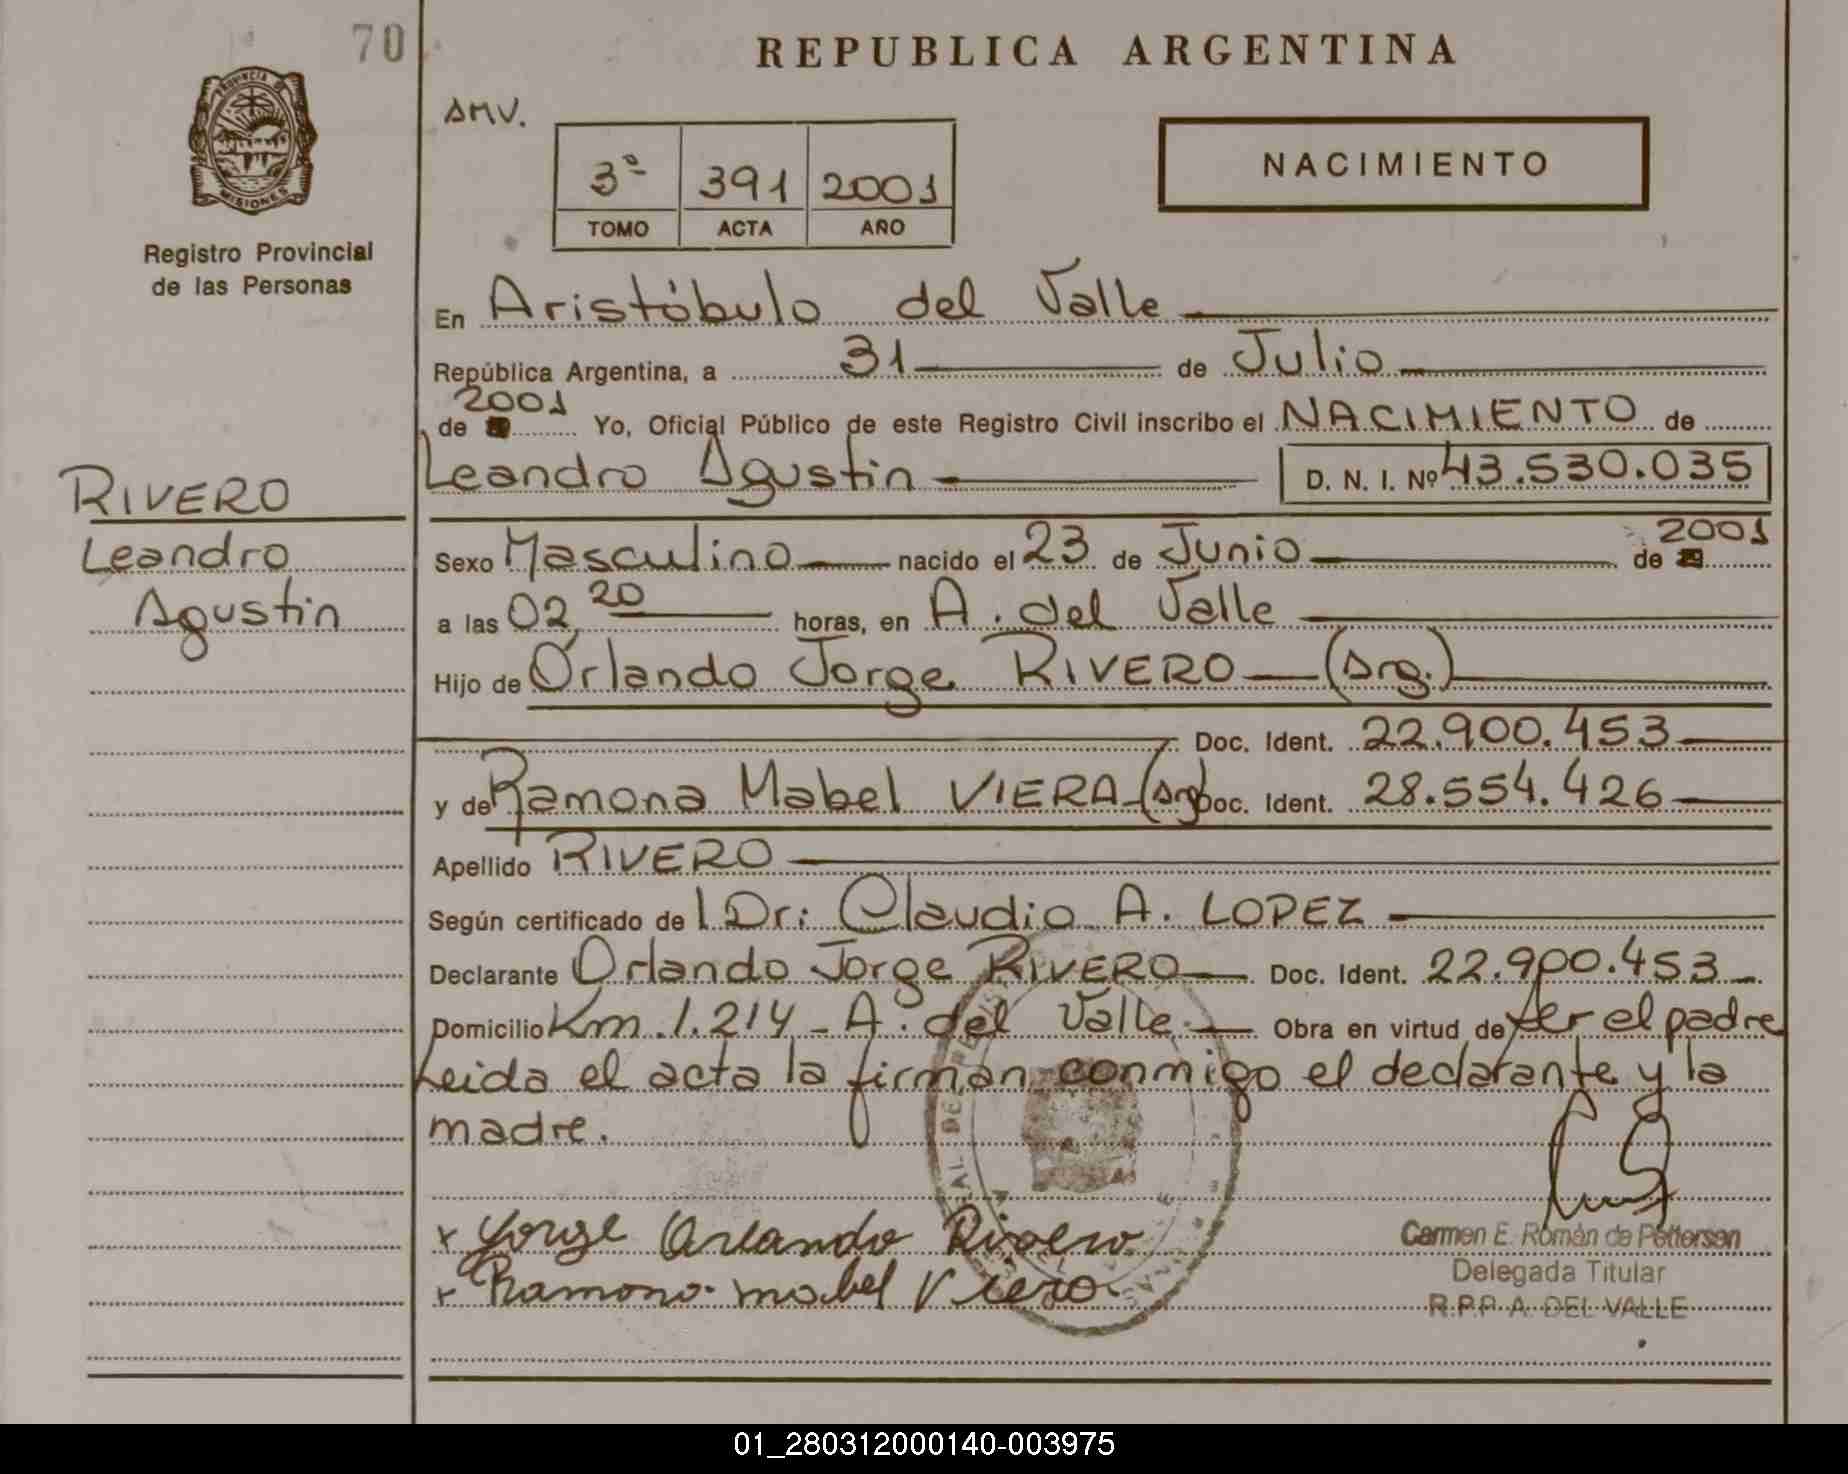 70
REPUBLICA ARGENTINA
PROVINCIA DE
MISIONES
Registro Provincial
de las Personas
AMV.
3º 391 2001
TOMO ACTA AÑO
NACIMIENTO
En Aristóbulo del Valle
República Argentina, a 31 de Julio
de 2001 Yo, Oficial Público de este Registro Civil inscribo el NACIMIENTO de
Leandro Agustin D. N. I. Nº 43.530.035
RIVERO
Leandro
Agustin
Sexo Masculino nacido el 23 de Junio de 2001
a las 02,20 horas, en A. del Valle
Hijo de Orlando Jorge RIVERO (Arg.)
Doc. Ident. 22.900.453
y de Ramona Mabel VIERA (Arg) Doc. Ident. 28.554.426
Apellido RIVERO
Según certificado de l Dr: Claudio A. LOPEZ
Declarante Orlando Jorge RIVERO Doc. Ident. 22.900.453
Domicilio Km. 1.214 - A. del Valle. Obra en virtud de ser el padre
Leida el acta la firman conmigo el declarante y la
madre.
x Jorge Orlando Rivero
x Ramona mabel Viera
Carmen E. Román de Pettersen
Delegada Titular
R.P.P A. DEL VALLE
01_280312000140-003975